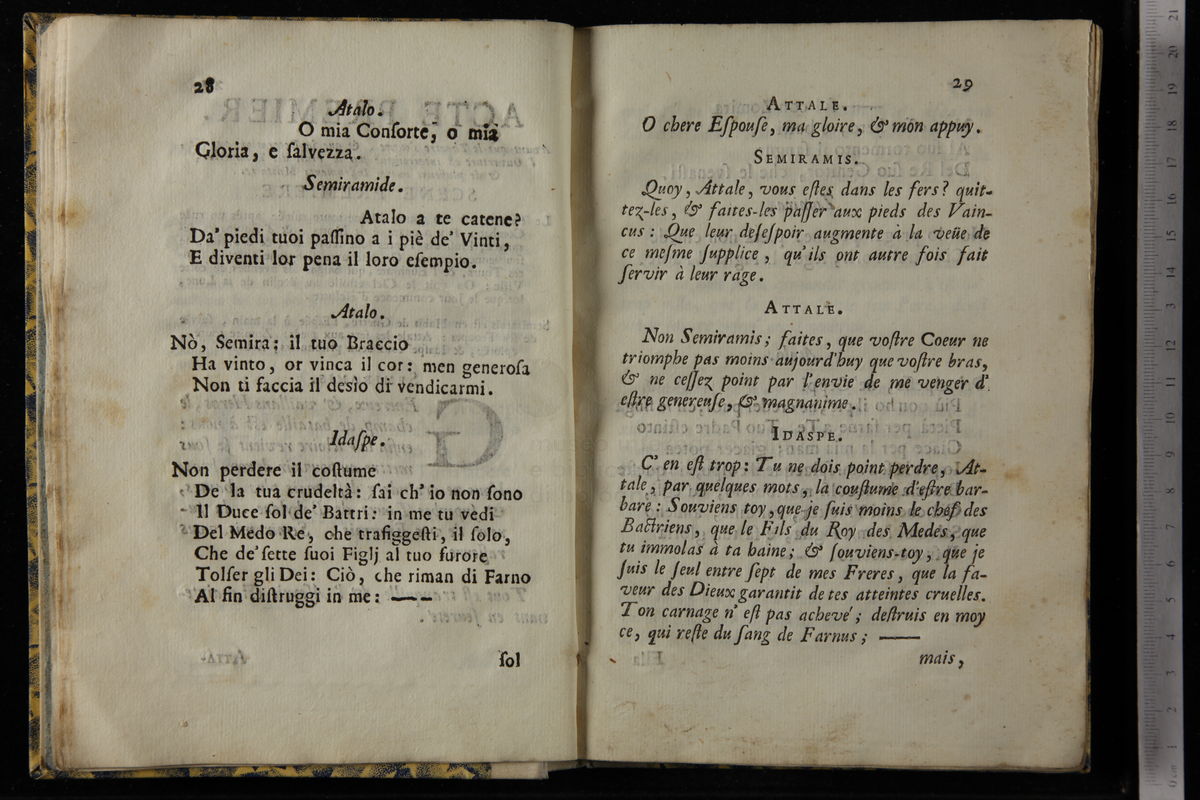 28
Atalo.
O mia Conſorte, o mia
Gloria, e ſalvezza.
Semiramide.
Atalo a te catene?
Da' piedi tuoi paſſino a i piè de' Vinti,
E diventi lor pena il loro eſempio.
Atalo.
Nò, Semira: il tuo Braccio
Ha vinto, or vinca il cor: men generoſa
Non ti faccia il desìo di vendicarmi.
Idaſpe.
Non perdere il coſtume
De la tua crudeltà: ſai ch' io non ſono
Il Duce ſol de' Battri: in me tu vedi
Del Medo Re, che trafiggeſti, il ſolo,
Che de' ſette ſuoi Figlj al tuo furore
Tolſer gli Dei: Ciò, che riman di Farno
Al fin diſtruggi in me: ——
ſol
29
ATTALE.
O chere Eſpouſe, ma gloire, & mon appuy.
SEMIRAMIS.
Quoy, Attale, vous eſtes dans les fers? quit-
tez-les, & faites-les paſſer aux pieds des Vain-
cus: Que leur deſeſpoir augmente à la veüe de
ce meſme ſupplice, qu'ils ont autre fois fait
ſervir à leur rage.
ATTALE.
Non Semiramis; faites, que voſtre Coeur ne
triomphe pas moins aujourd'huy que voſtre bras,
& ne ceſſez point par l'envie de me venger d'
eſtre genereuſe, & magnanime.
IDASPE.
C' en eſt trop: Tu ne dois point perdre, At-
tale, par quelques mots, la couſtume d'eſtre bar-
bare: Souviens toy, que je ſuis moins le chef des
Bactriens, que le Fils du Roy des Medes, que
tu immolas à ta haine; & ſouviens-toy, que je
ſuis le ſeul entre ſept de mes Freres, que la fa-
veur des Dieux garantit de tes atteintes cruelles.
Ton carnage n' eſt pas achevé; deſtruis en moy
ce, qui reſte du ſang de Farnus; ——
mais,